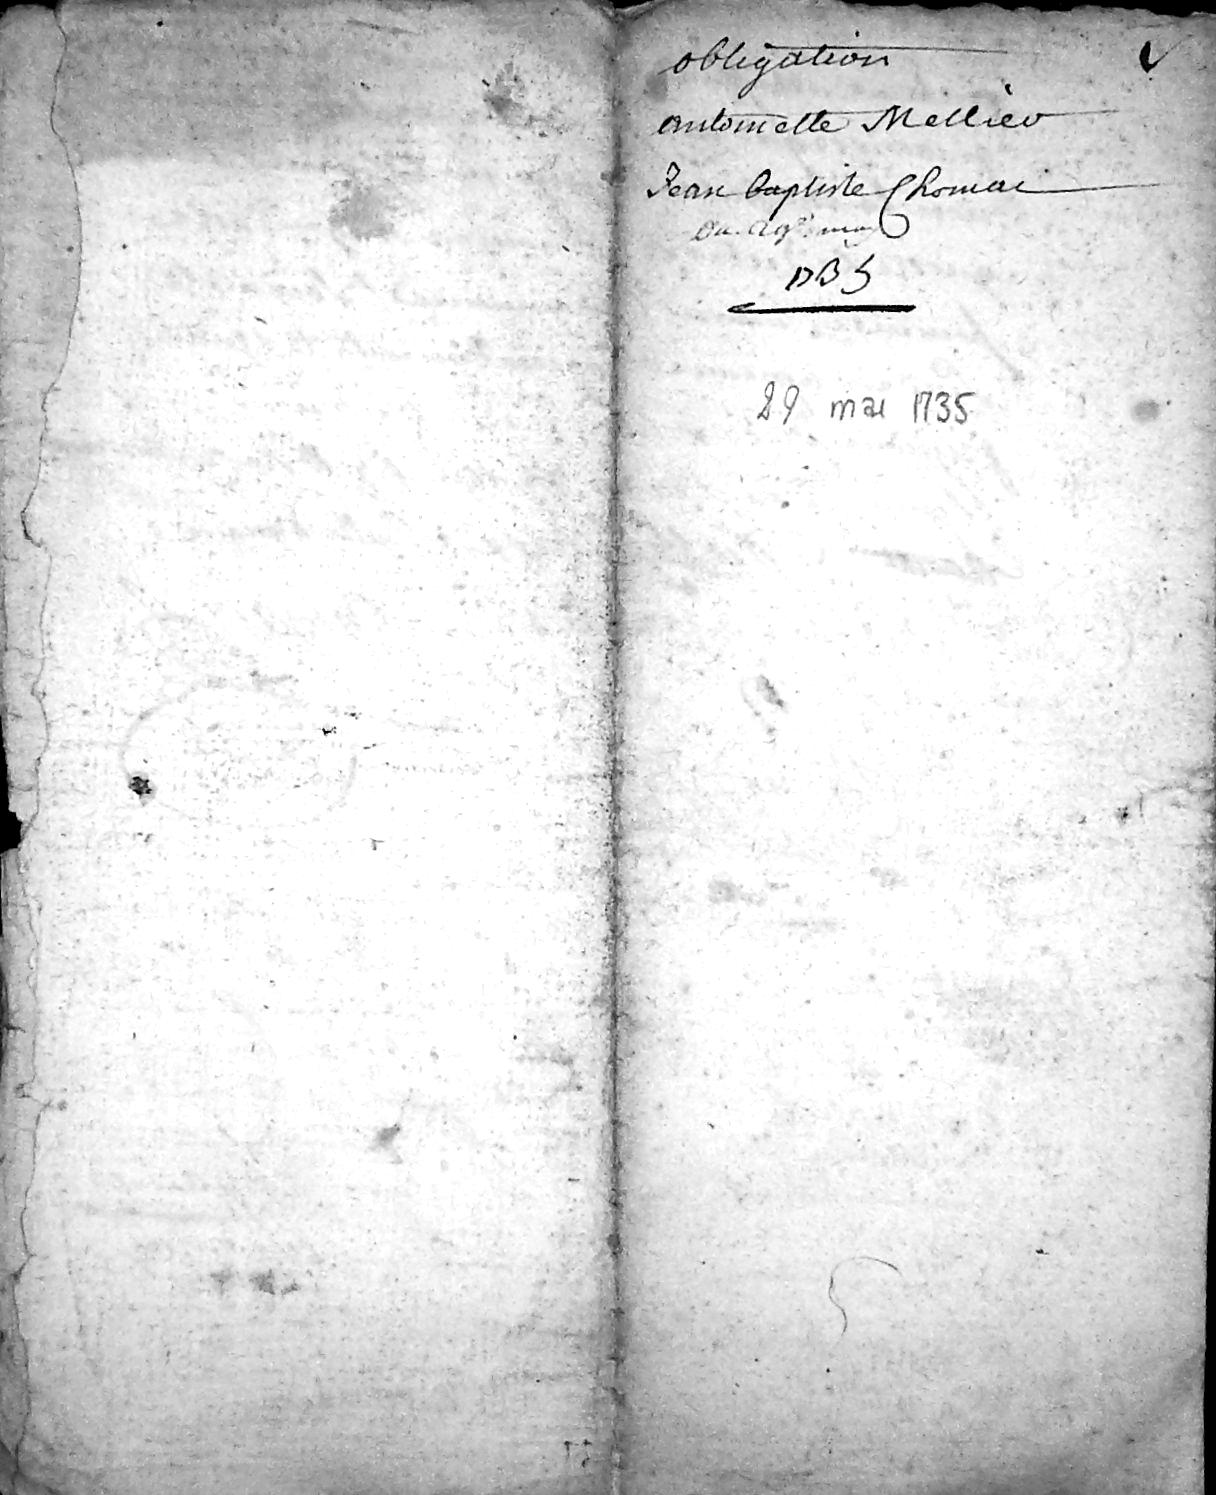 obligation
Antoinette Mellier
Jean baptiste Chomat
Du 29e. may
1735
29 mai 1735